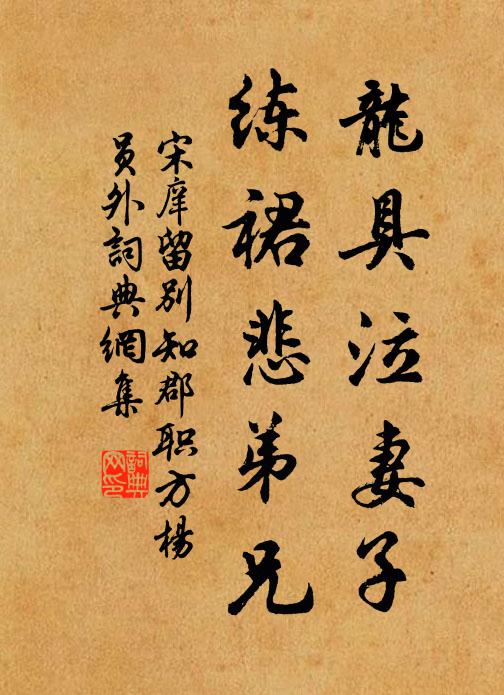 龍具泣妻子
练裙悲弟兄
宋庠留别知郡职方楊
員外詞典網集
詞典网印